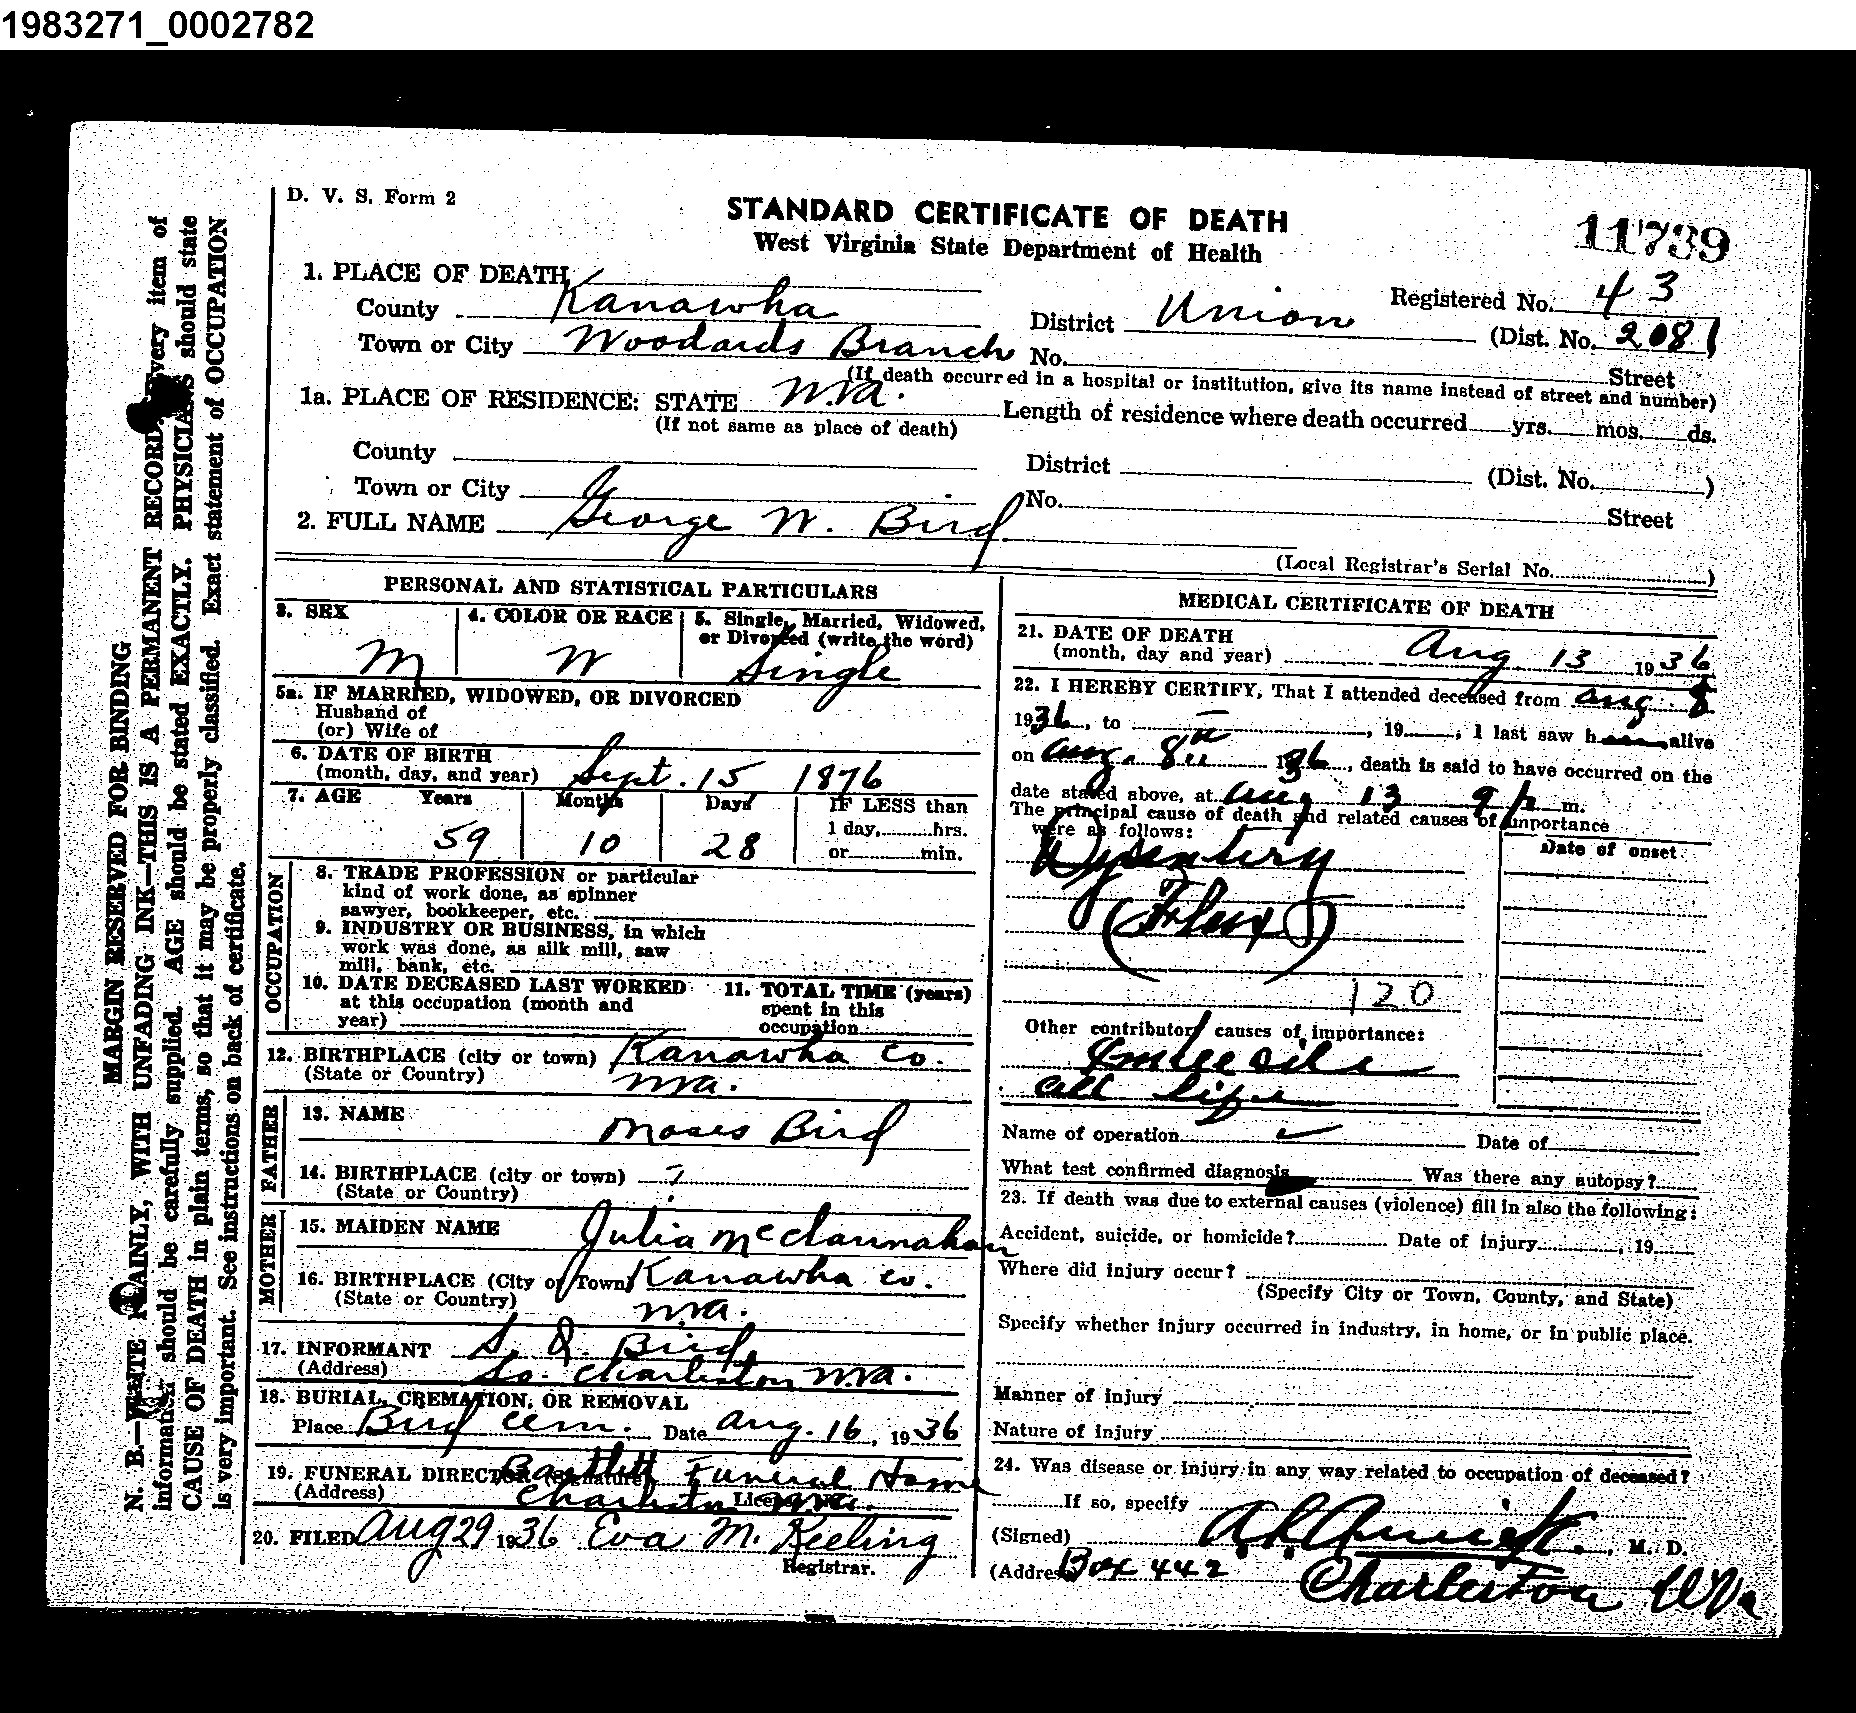 1983271_0002782
D. V. S. Form 2
STANDARD CERTIFICATE OF DEATH
West Virginia State Department of Health
11739
1. PLACE OF DEATH
County Kanawha District Union Registered No. 43
(Dist. No. 2081)
Town or City Woodards Branch No. Street
(If death occurred in a hospital or institution, give its name instead of street and number)
1a. PLACE OF RESIDENCE: STATE W.Va. Length of residence where death occurred yrs. mos. ds.
(If not same as place of death)
County District (Dist. No. )
Town or City No. Street
2. FULL NAME George W. Bird
(Local Registrar's Serial No. )
MARGIN RESERVED FOR BINDING
N. B.—WRITE PLAINLY, WITH UNFADING INK—THIS IS A PERMANENT RECORD. Every item of
information should be carefully supplied. AGE should be stated EXACTLY. PHYSICIANS should state
CAUSE OF DEATH in plain terms, so that it may be properly classified. Exact statement of OCCUPATION
is very important. See instructions on back of certificate.
PERSONAL AND STATISTICAL PARTICULARS
3. SEX 4. COLOR OR RACE 5. Single, Married, Widowed,
or Divorced (write the word)
M W Single
5a. IF MARRIED, WIDOWED, OR DIVORCED
Husband of
(or) Wife of
6. DATE OF BIRTH
(month, day, and year) Sept. 15 1876
7. AGE Years Months Days IF LESS than
1 day, hrs.
59 10 28 or min.
OCCUPATION
8. TRADE PROFESSION or particular
kind of work done, as spinner
sawyer, bookkeeper, etc.
9. INDUSTRY OR BUSINESS, in which
work was done, as silk mill, saw
mill, bank, etc.
10. DATE DECEASED LAST WORKED 11. TOTAL TIME (years)
at this occupation (month and spent in this
year) occupation
12. BIRTHPLACE (city or town) Kanawha Co.
(State or Country) W.Va.
FATHER
13. NAME
Moses Bird
14. BIRTHPLACE (city or town) ?
(State or Country)
MOTHER
15. MAIDEN NAME Julia McClannahan
16. BIRTHPLACE (City or Town) Kanawha Co.
(State or Country) W.Va.
17. INFORMANT S. Q. Bird
(Address) So. Charleston W.Va.
18. BURIAL, CREMATION, OR REMOVAL
Place Bird Cem. Date Aug. 16, 1936
19. FUNERAL DIRECTOR (Signature) Bartlett Funeral Home
(Address) Charleston W.Va.
20. FILED Aug 29 1936 Eva M. Keeling
Registrar.
MEDICAL CERTIFICATE OF DEATH
21. DATE OF DEATH
(month, day and year) Aug 13 1936
22. I HEREBY CERTIFY, That I attended deceased from Aug. 8
1936, to , 19 , I last saw h alive
on Aug. 8 1936, death is said to have occurred on the
date stated above, at Aug 13 9 p m.
The principal cause of death and related causes of importance
were as follows: Date of onset
Dysentery
(Flux)
120
Other contributory causes of importance:
Imbecile
all life
Name of operation Date of
What test confirmed diagnosis Was there any autopsy?
23. If death was due to external causes (violence) fill in also the following:
Accident, suicide, or homicide? Date of injury , 19
Where did injury occur?
(Specify City or Town, County, and State)
Specify whether injury occurred in industry, in home, or in public place.
Manner of injury
Nature of injury
24. Was disease or injury in any way related to occupation of deceased?
If so, specify
(Signed) A. L. Amick, M. D.
(Address) Box 442 Charleston W Va